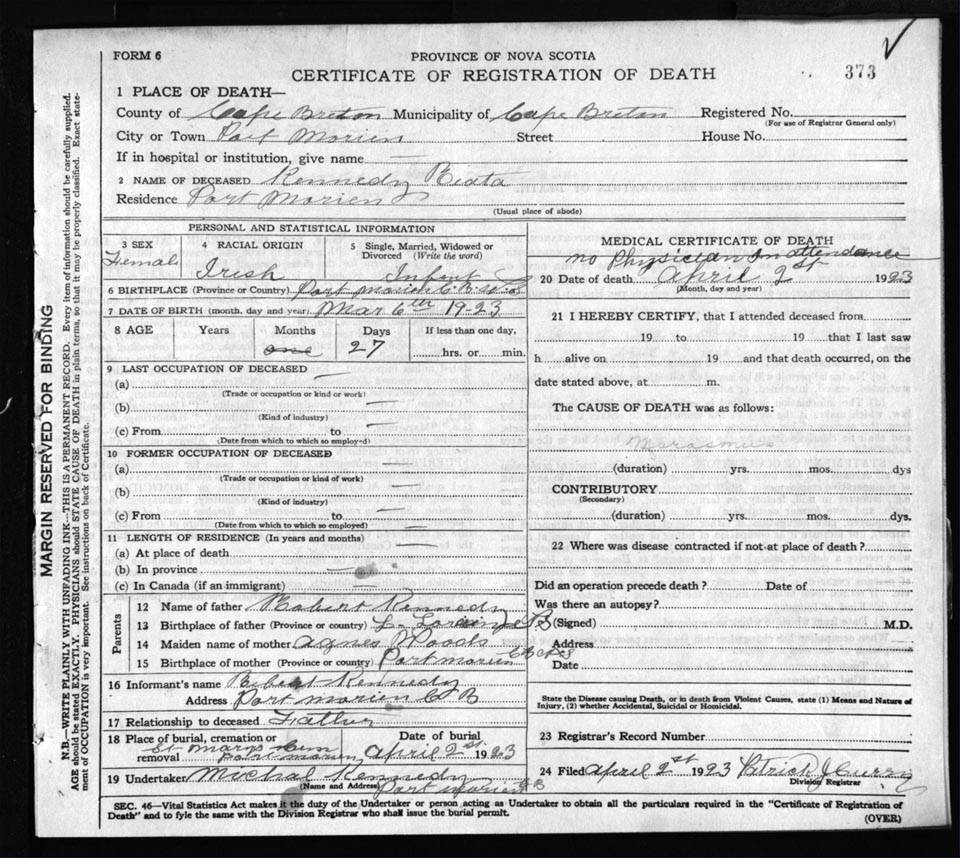 FORM 6
PROVINCE OF NOVA SCOTIA
CERTIFICATE OF REGISTRATION OF DEATH
373
1 PLACE OF DEATH—
County of Cape Breton Municipality of Cape Breton Registered No.
(For use of Registrar General only)
City or Town Port Morien Street House No.
If in hospital or institution, give name —
2 NAME OF DECEASED Kennedy Beata
Residence Port Morien
(Usual place of abode)
PERSONAL AND STATISTICAL INFORMATION
3 SEX 4 RACIAL ORIGIN 5 Single, Married, Widowed or Divorced (Write the word)
Female Irish Infant
6 BIRTHPLACE (Province or Country) Port Morien C.B. N.S
7 DATE OF BIRTH (month, day and year) Mar 6th 1923
8 AGE Years Months Days If less than one day,
one 27 hrs. or min.
9 LAST OCCUPATION OF DECEASED —
(a)
(Trade or occupation or kind or work)
(b) —
(Kind of industry)
(c) From to —
(Date from which to which so employed)
10 FORMER OCCUPATION OF DECEASED
(a) —
(Trade or occupation or kind of work)
(b) —
(Kind of industry)
(c) From to —
(Date from which to which so employed) —
11 LENGTH OF RESIDENCE (In years and months) —
(a) At place of death
(b) In province —
(c) In Canada (if an immigrant) —
Parents
12 Name of father Robert Kennedy
13 Birthplace of father (Province or country) L. Lorraine C B
14 Maiden name of mother Agnes J Woods
15 Birthplace of mother (Province or country) Port Morien C B N S
16 Informant's name Robert Kennedy
Address Port Morien C B
17 Relationship to deceased Father
18 Place of burial, cremation or removal St Marys Cem Port Morien
Date of burial April 2st 1923
19 Undertaker Michal Kennedy
(Name and Address) Port Morien C B
MEDICAL CERTIFICATE OF DEATH
no Physician in attendance
20 Date of death April 2st 1923
(Month, day and year)
21 I HEREBY CERTIFY, that I attended deceased from
19 to 19 that I last saw
h alive on 19 and that death occurred, on the
date stated above, at m.
The CAUSE OF DEATH was as follows:
Marasmus
(duration) yrs. mos. dys
CONTRIBUTORY
(Secondary)
(duration) yrs. mos. dys.
22 Where was disease contracted if not at place of death?
Did an operation precede death? Date of
Was there an autopsy?
(Signed) M.D.
Address
Date
State the Disease causing Death, or in death from Violent Causes, state (1) Means and Nature of
Injury, (2) whether Accidental, Suicidal or Homicidal.
23 Registrar's Record Number
24 Filed April 2st 1923 Patrick J Curry
Division Registrar
SEC. 46—Vital Statistics Act makes it the duty of the Undertaker or person acting as Undertaker to obtain all the particulars required in the "Certificate of Registration of
Death" and to fyle the same with the Division Registrar who shall issue the burial permit.
(OVER)
MARGIN RESERVED FOR BINDING
N.B.—WRITE PLAINLY WITH UNFADING INK—THIS IS A PERMANENT RECORD. Every item of information should be carefully supplied.
AGE should be stated EXACTLY. PHYSICIANS should STATE CAUSE OF DEATH in plain terms, so that it may be properly classified. Exact state-
ment of OCCUPATION is very important. See instructions on back of Certificate.